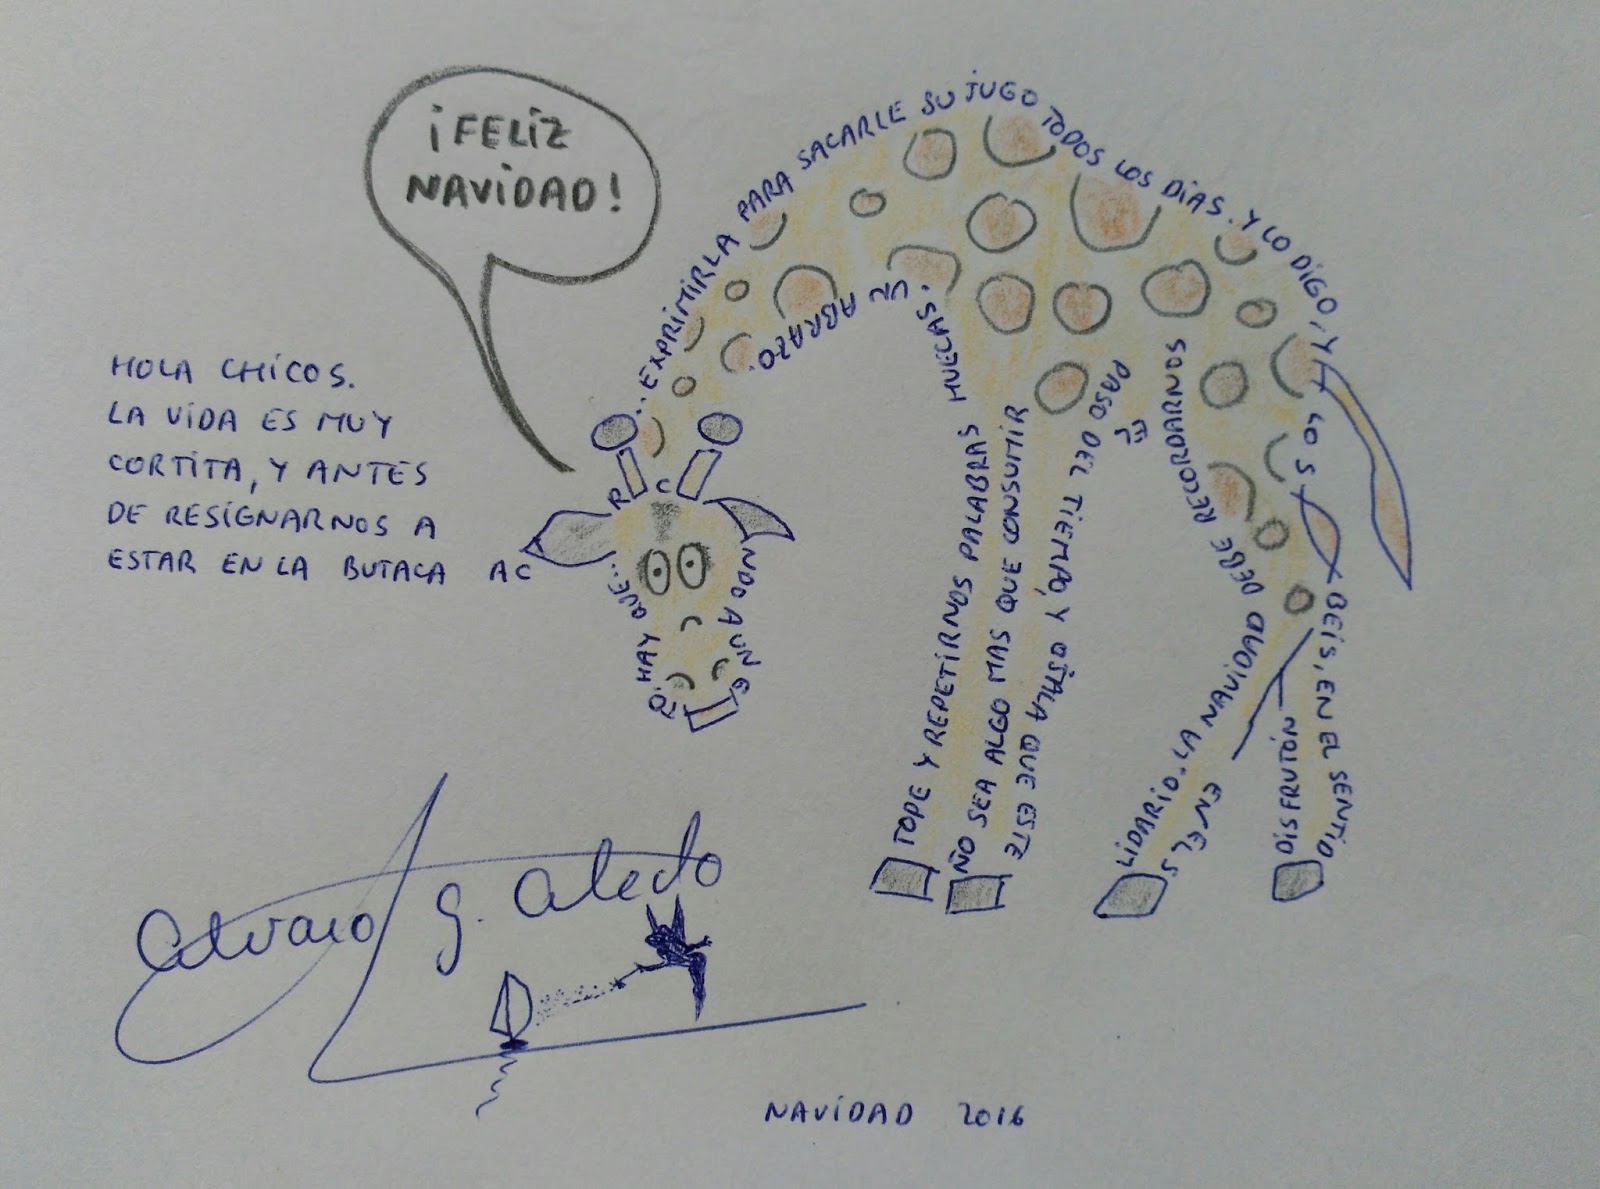 ¡FELIZ
NAVIDAD!
HOLA CHICOS.
LA VIDA ES MUY
CORTITA, Y ANTES
DE RESIGNARNOS A
ESTAR EN LA BUTACA AC
R C
NDO A UN G
TO, HAY QUE...
...EXPRIMIRLA PARA SACARLE SU JUGO TODOS LOS DÍAS. Y LO DIGO, Y
BEIS, EN EL SENTIDO
DISFRUTÓN
EN EL S
LIDARIO. LA NAVIDAD DEBE RECORDARNOS
EL
PASO DEL TIEMPO, Y OJALA QUE ESTE
ÑO SEA ALGO MAS QUE CONSUMIR
TOPE Y REPETIRNOS PALABRAS HUECAS.
UN ABRAZO.
Alvaro G. Aledo
NAVIDAD 2016